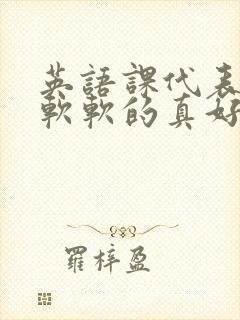 英語課代表
軟軟的真好
羅梓盈